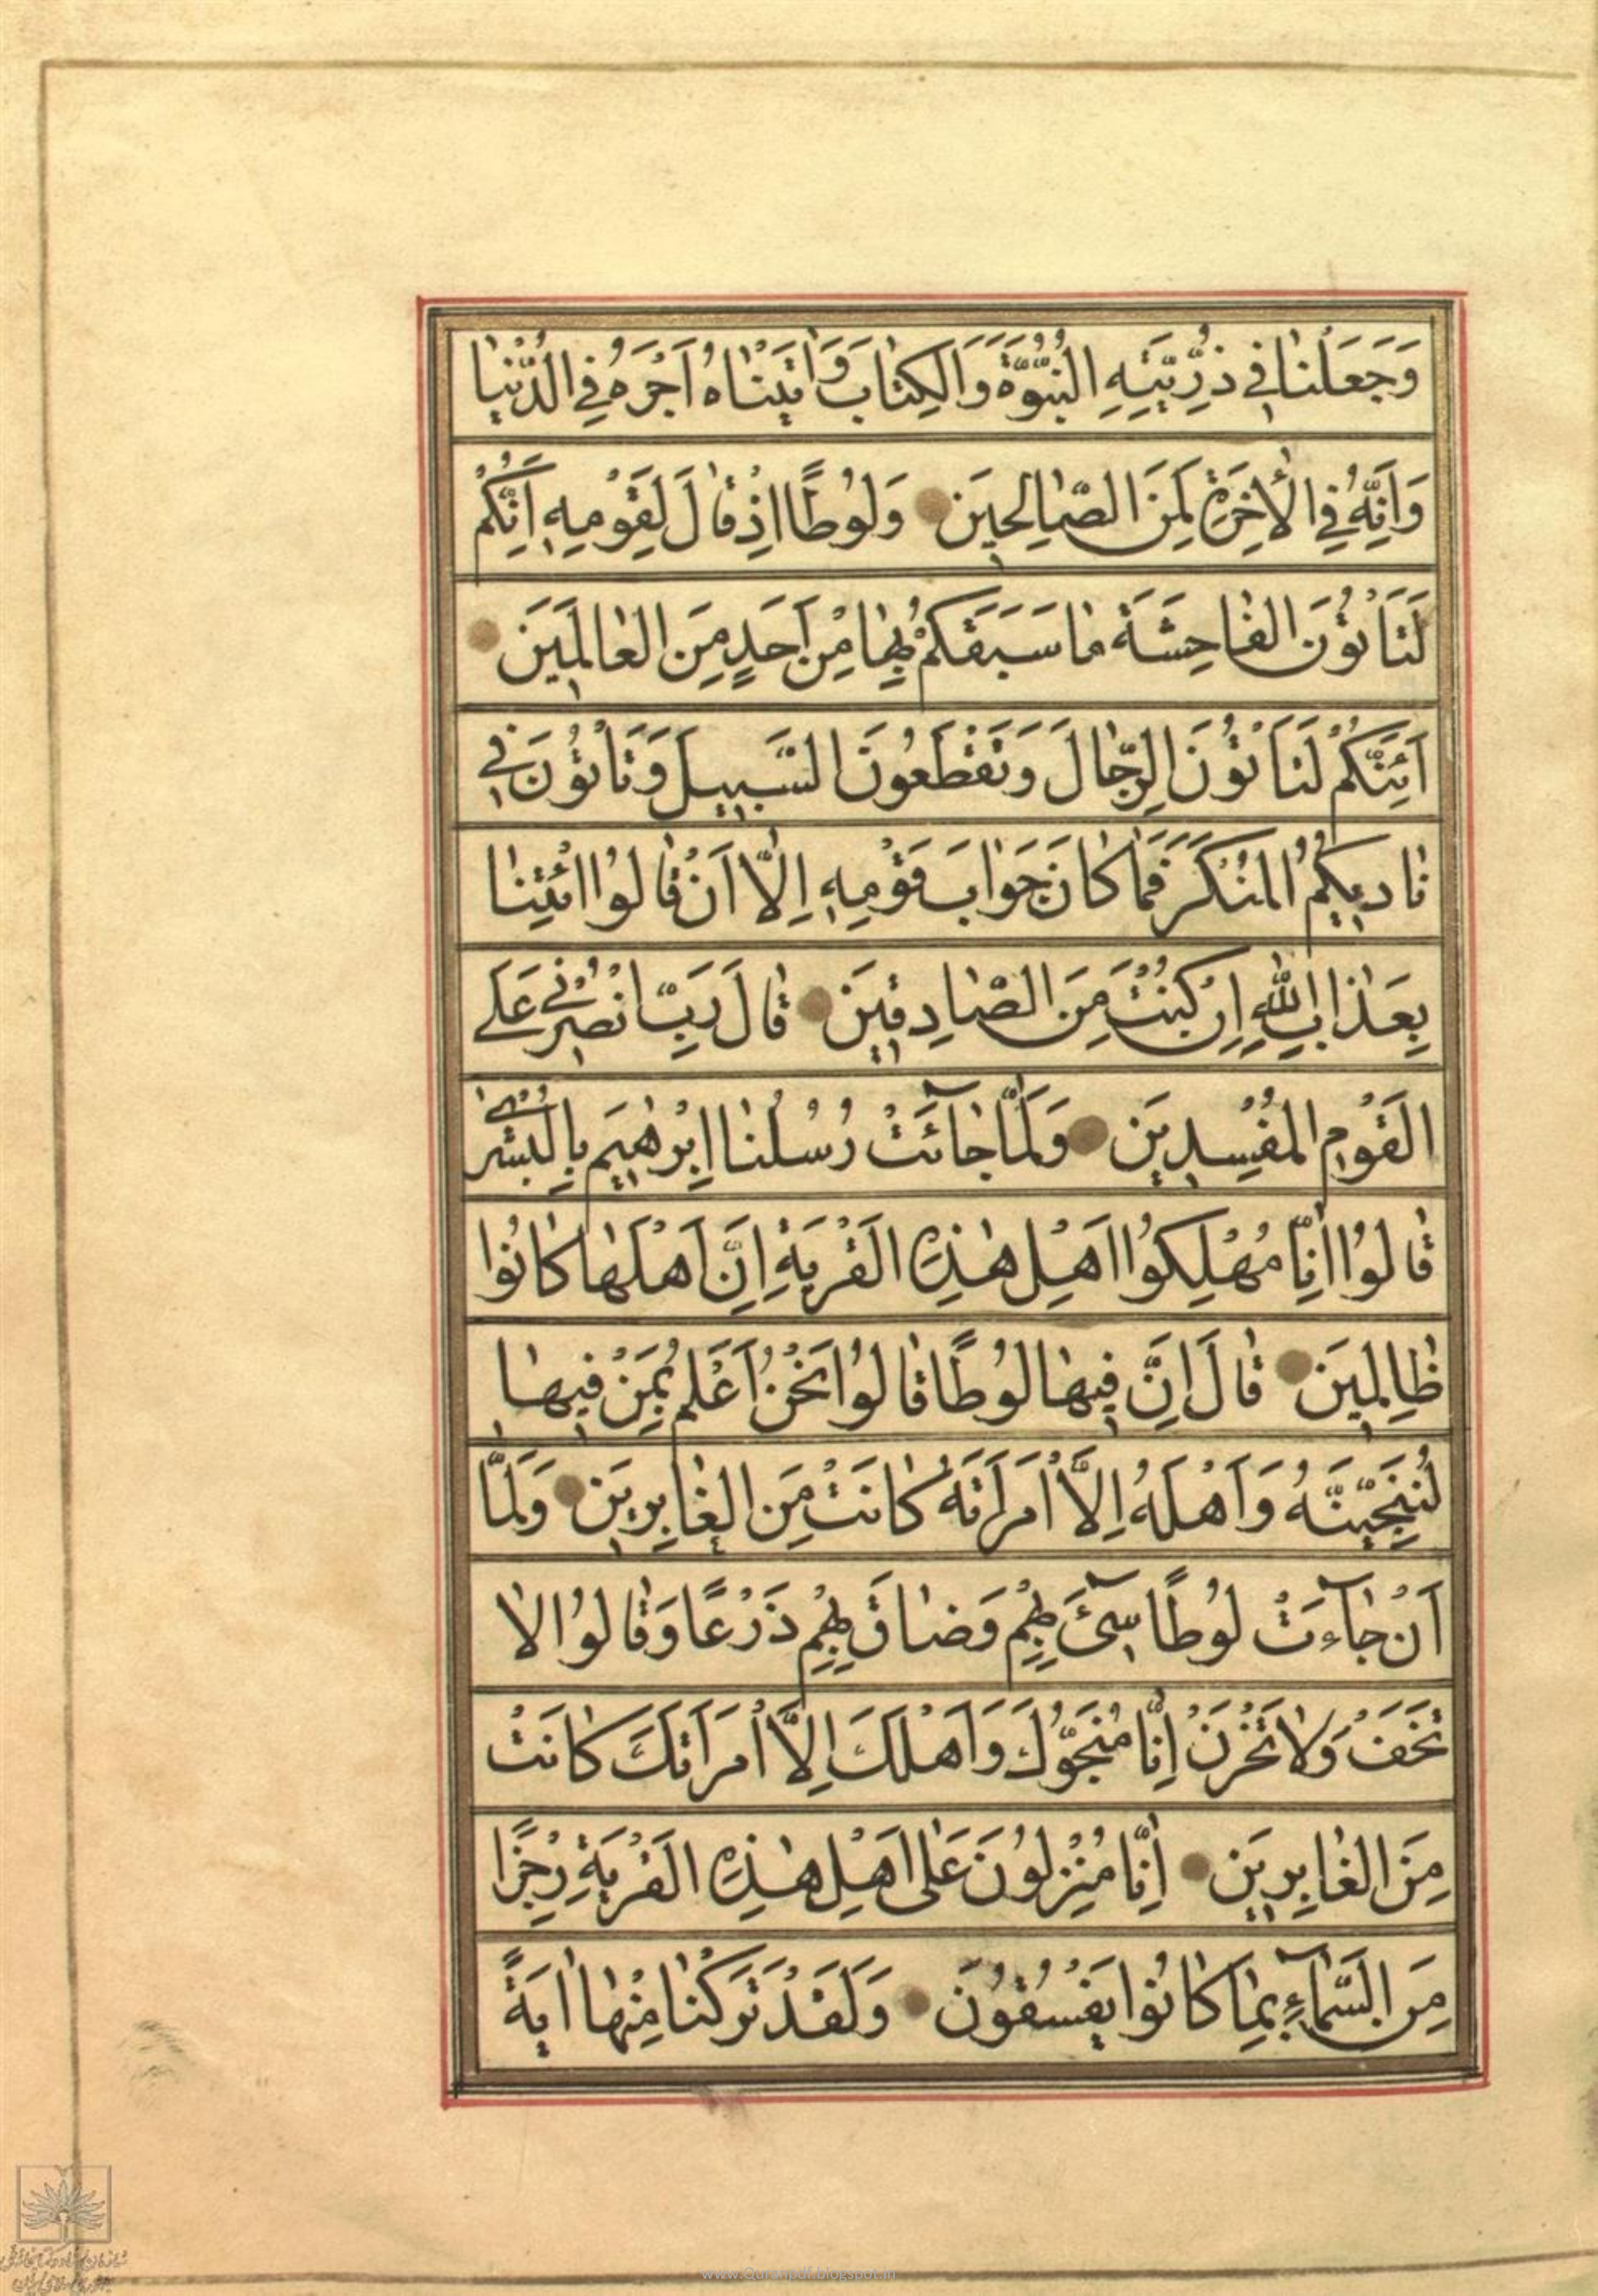 وَجَعَلْنٰا في ذُرِّيَّتِهِ النُّبُوَّةَ وَالْكِتٰابَ وَاٰتَيْنٰاهُ اَجْرَهُ فِي الدُّنْيٰا
وَاِنَّهُ فِي الْاٰخِرَةِ لَمِنَ الصّٰالِحينَ وَلُوطًا اِذْ قٰالَ لِقَوْمِهِ اِنَّكُمْ
لَتَاْتُونَ الْفٰاحِشَةَ مٰا سَبَقَكُمْ بِهٰا مِنْ اَحَدٍ مِنَ الْعٰالَمينَ
اَئِنَّكُمْ لَتَاْتُونَ الرِّجٰالَ وَتَقْطَعُونَ السَّبيلَ وَتَاْتُونَ في
نٰاديكُمُ الْمُنْكَرَ فَمٰا كٰانَ جَوٰابَ قَوْمِهِ اِلّٰا اَنْ قٰالُوا ائْتِنٰا
بِعَذٰابِ اللّٰهِ اِنْ كُنْتَ مِنَ الصّٰادِقينَ قٰالَ رَبِّ انْصُرْني عَلَى
الْقَوْمِ الْمُفْسِدينَ وَلَمّٰا جٰآئَتْ رُسُلُنٰا اِبْرٰهيمَ بِالْبُشْرٰى
قٰالُوا اِنّٰا مُهْلِكُوا اَهْلِ هٰذِهِ الْقَرْيَةِ اِنَّ اَهْلَهٰا كٰانُوا
ظٰالِمينَ قٰالَ اِنَّ فيهٰا لُوطًا قٰالُوا نَحْنُ اَعْلَمُ بِمَنْ فيهٰا
لَنُنَجِّيَنَّهُ وَاَهْلَهُ اِلَّا امْرَاَتَهُ كٰانَتْ مِنَ الْغٰابِرينَ وَلَمّٰا
اَنْ جٰآءَتْ لُوطًا سيٓئَ بِهِمْ وَضٰاقَ بِهِمْ ذَرْعًا وَقٰالُوا لٰا
تَخَفْ وَلٰا تَحْزَنْ اِنّٰا مُنَجُّوكَ وَاَهْلَكَ اِلَّا امْرَاَتَكَ كٰانَتْ
مِنَ الْغٰابِرينَ اِنّٰا مُنْزِلُونَ عَلٰى اَهْلِ هٰذِهِ الْقَرْيَةِ رِجْزًا
مِنَ السَّمٰآءِ بِمٰا كٰانُوا يَفْسُقُونَ وَلَقَدْ تَرَكْنٰا مِنْهٰا اٰيَةً
www.Quranpdf.blogspot.in